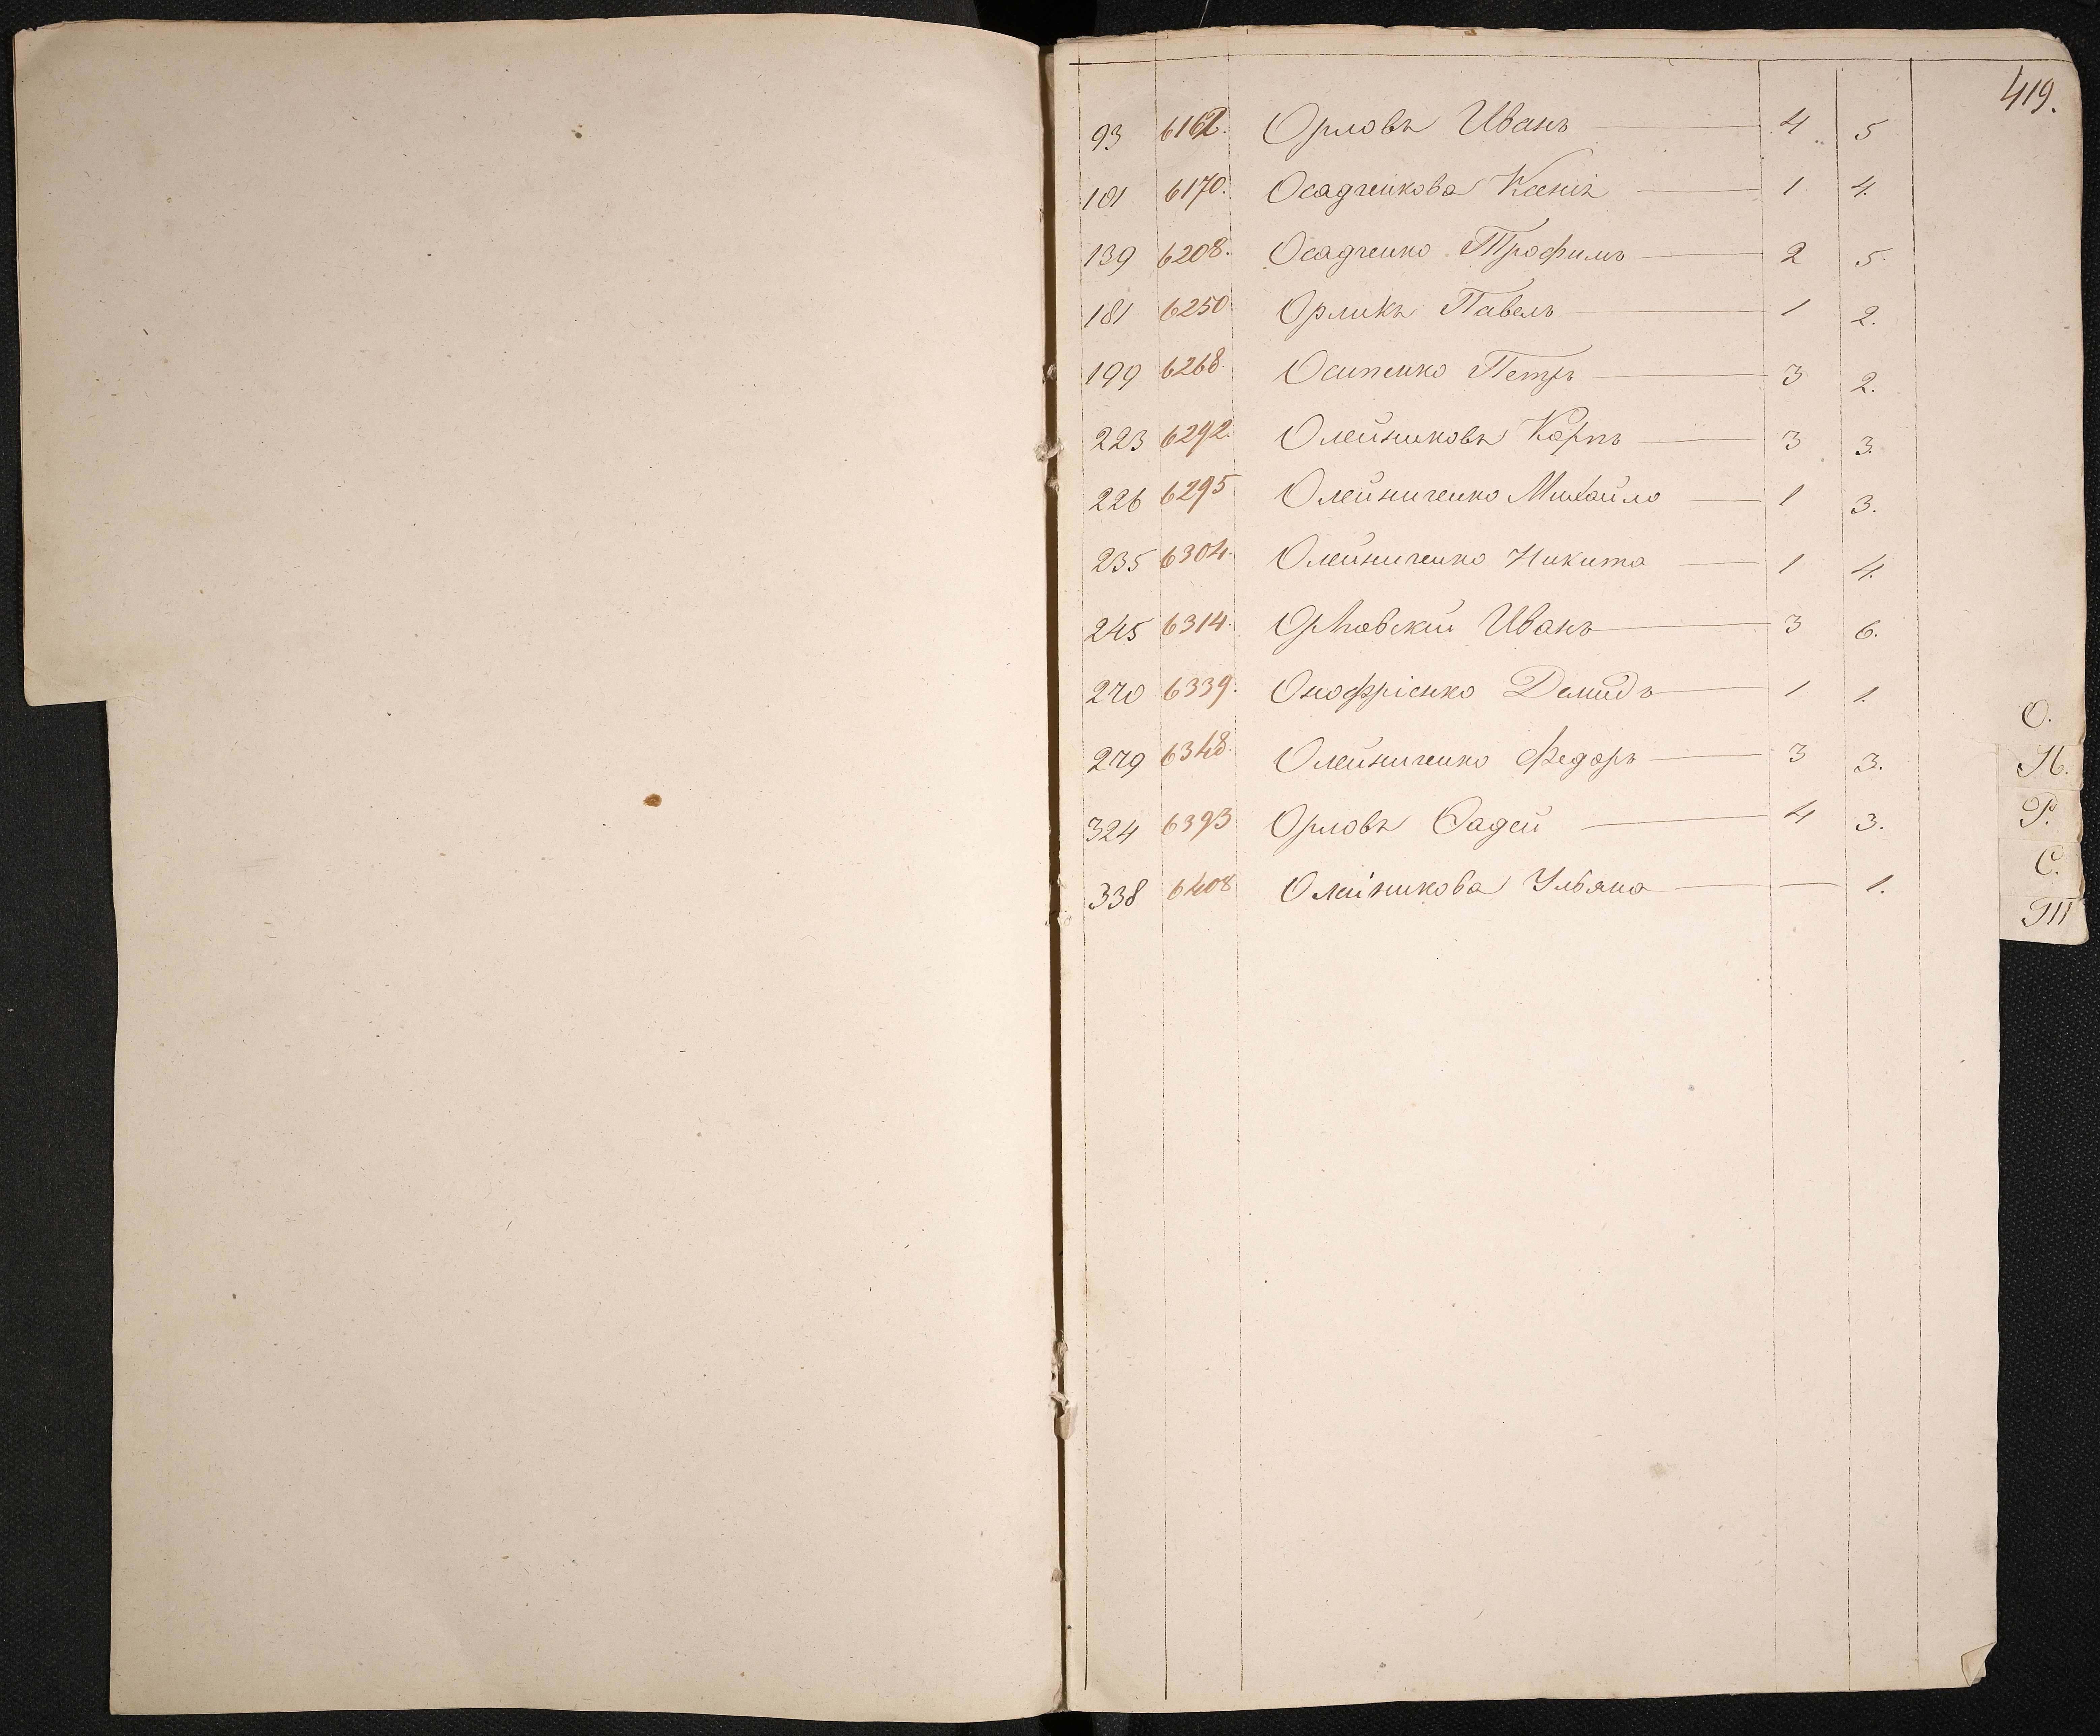 419.
93 6162. Орловъ Иванъ — 4 5
101 6170. Осадченкова Ксенія — 1 4.
139 6208. Осадченко Трофимъ — 2 5.
181 6250 Орликъ Павелъ — 1 2.
199 6268. Осипенко Петръ — 3 2.
223 6292. Олейниковъ Карпъ — 3 3.
226 6295 Олейниченко Михайло — 1 3.
235 6304. Олейниченко Никита — 1 4.
245 6314. Орловскій Иванъ — 3 6.
270 6339. Онофріенко Демидъ — 1 1.
279 6348. Олейниченко Федоръ — 3 3.
324 6393 Орловъ Фадей — 4 3.
338 6408 Олейникова Ульяна — — 1.
О.
П.
Р.
С.
Т